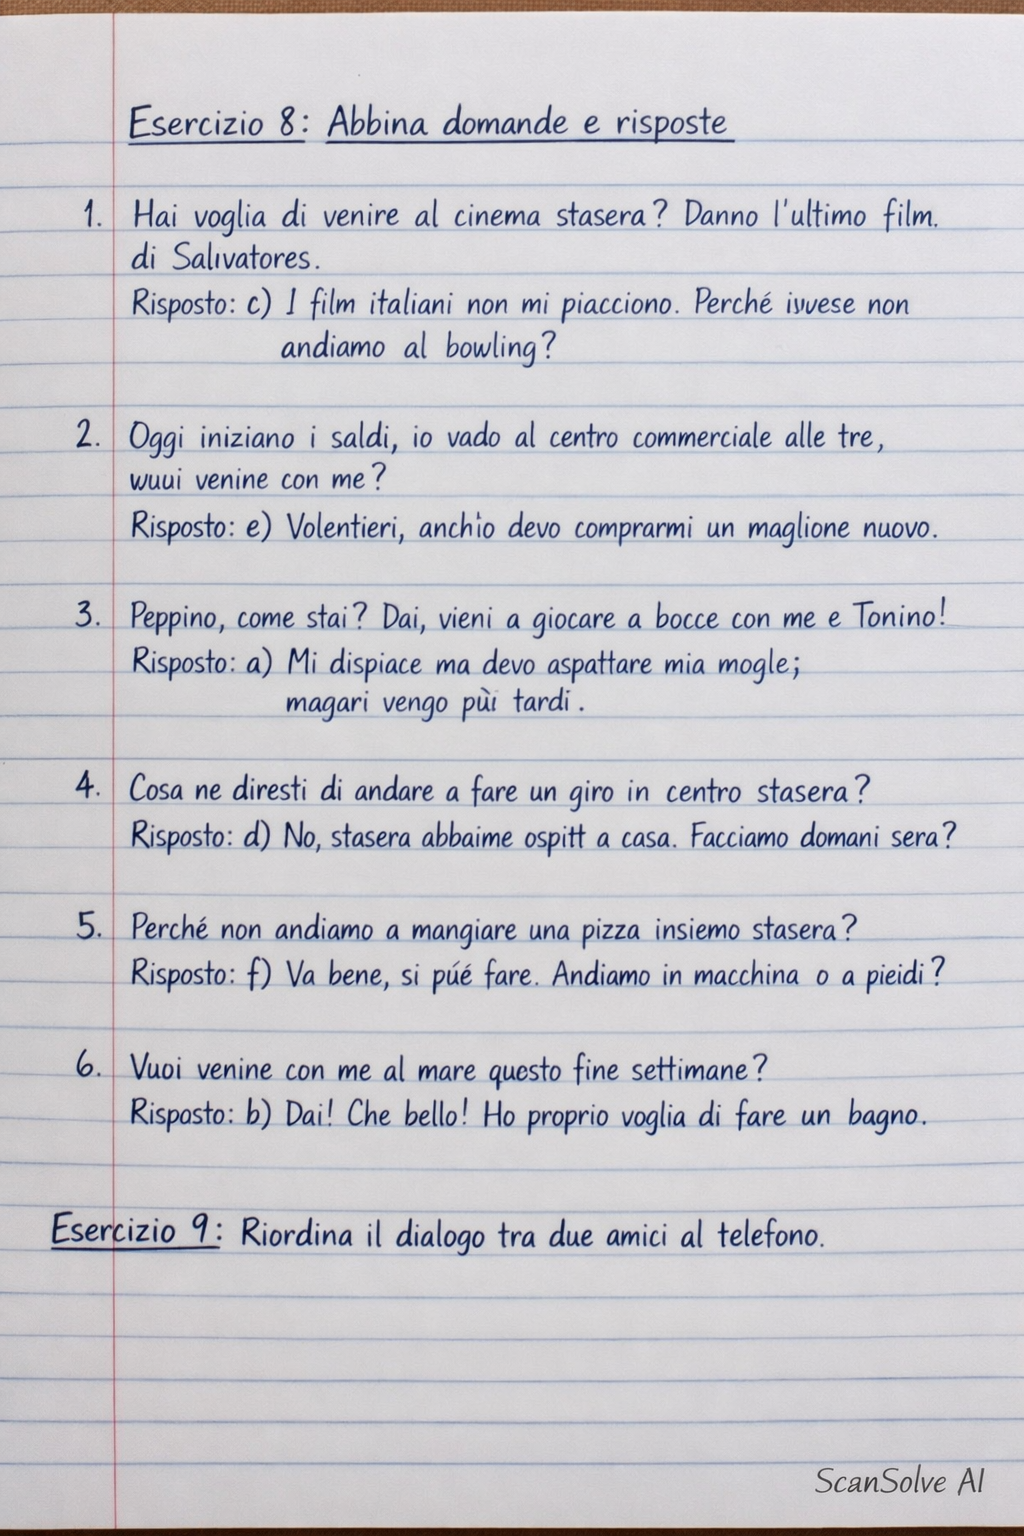 Esercizio 8: Abbina domande e risposte
1. Hai voglia di venire al cinema stasera? Danno l'ultimo film.
di Salıvatores.
Risposto: c) I film italiani non mi piacciono. Perché ivvese non
andiamo al bowling?
2. Oggi iniziano i saldi, io vado al centro commerciale alle tre,
wuui venine con me?
Risposto: e) Volentieri, anch'io devo comprarmi un maglione nuovo.
3. Peppino, come stai? Dai, vieni a giocare a bocce con me e Tonino!
Risposto: a) Mi dispiace ma devo aspattare mia mogle;
magari vengo pùi tardi.
4. Cosa ne diresti di andare a fare un giro in centro stasera?
Risposto: d) No, stasera abbaime ospitt a casa. Facciamo domani sera?
5. Perché non andiamo a mangiare una pizza insiemo stasera?
Risposto: f) Va bene, si púé fare. Andiamo in macchina o a pieidi?
6. Vuoi venine con me al mare questo fine settimane?
Risposto: b) Dai! Che bello! Ho proprio voglia di fare un bagno.
Esercizio 9: Riordina il dialogo tra due amici al telefono.
ScanSolve AI